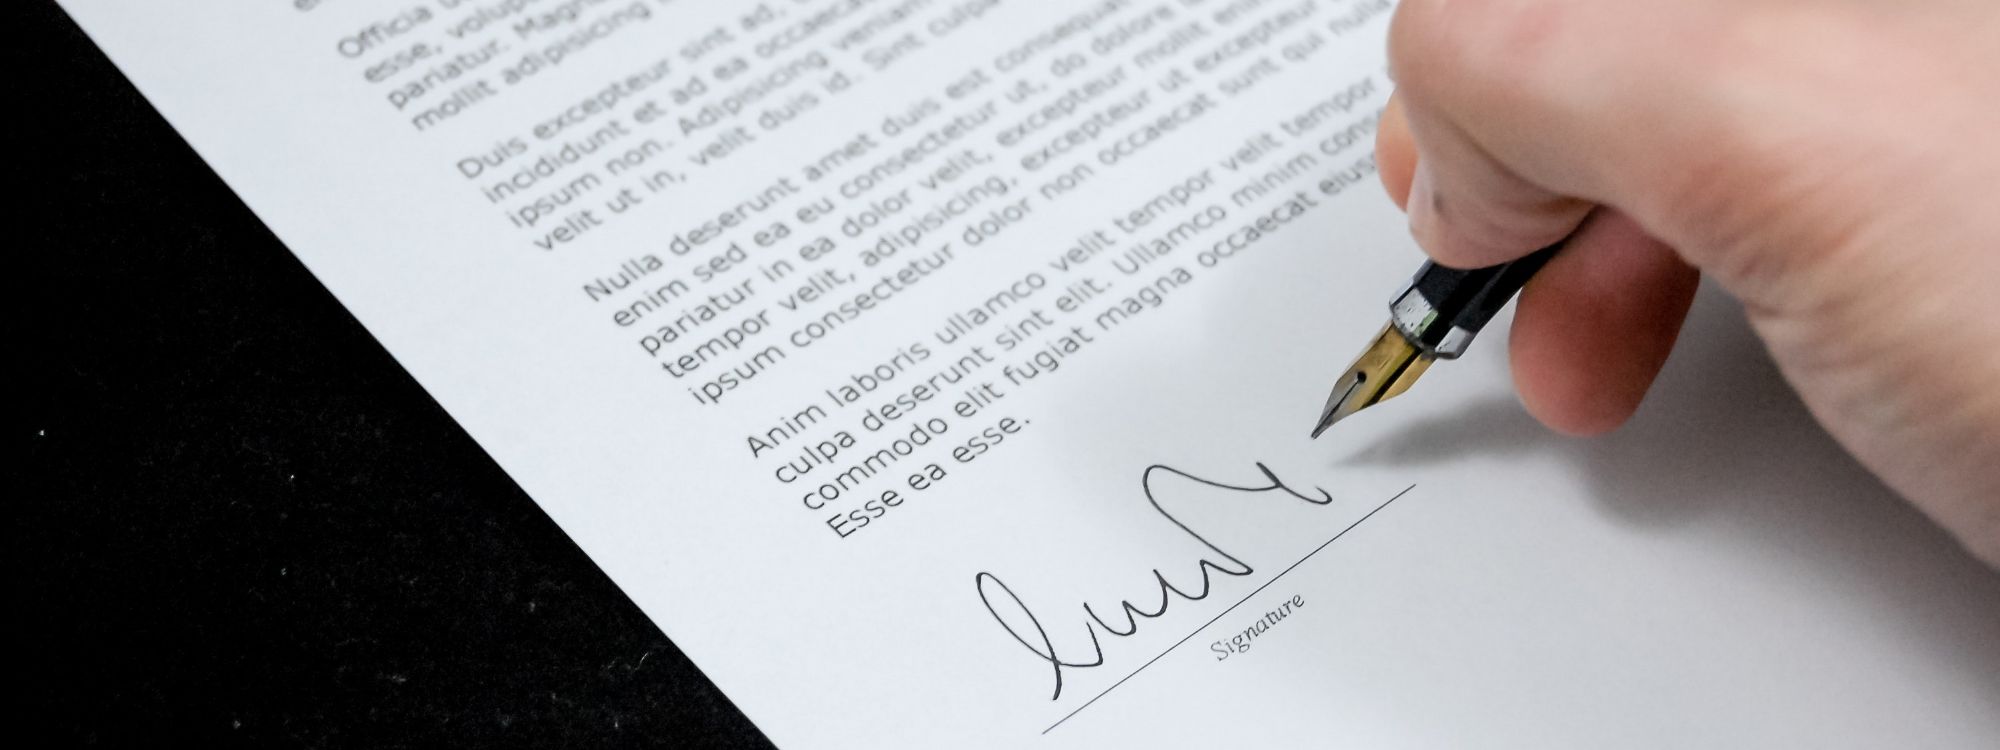 Officia
esse, volup
pariatur. Magn
mollit adipisicing
Duis excepteur sint ad,
incididunt et ad ea occaecat
ipsum non. Adipisicing veniam
velit ut in, velit duis id. Sint culpa
Nulla deserunt amet duis est consequat
enim sed ea eu consectetur ut, do dolore
pariatur in ea dolor velit, excepteur mollit enim
tempor velit, adipisicing, excepteur ut excepteur
ipsum consectetur dolor non occaecat sunt qui nulla
Anim laboris ullamco velit tempor velit tempor
culpa deserunt sint elit. Ullamco minim cons
commodo elit fugiat magna occaecat eius
Esse ea esse.
Signature